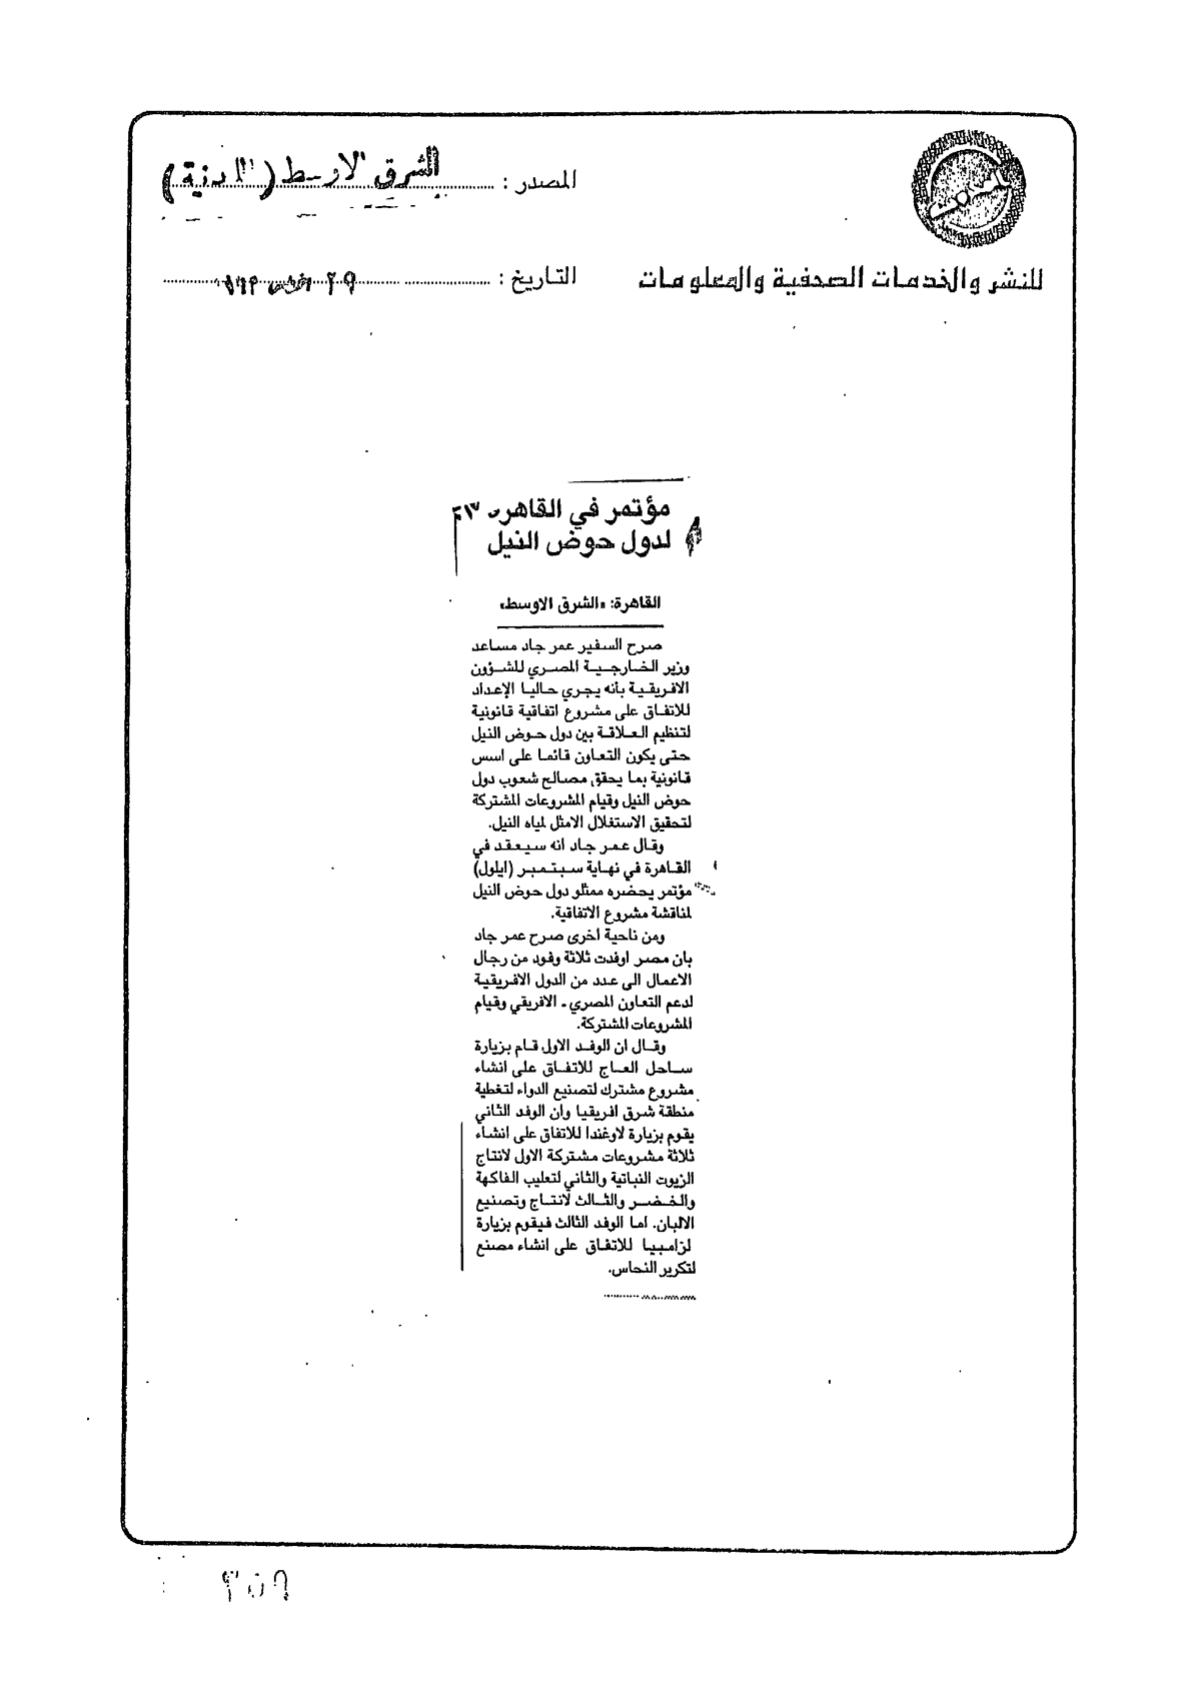 المصدر : الشرق الاوسط (اللندنية)
للنشر والخدمات الصحفية والمعلومات
التاريخ : ٢٩
مؤتمر في القاهرة
لدول حوض النيل
القاهرة: «الشرق الاوسط»
صرح السفير عمر جاد مساعد
وزير الخارجية المصري للشؤون
الافريقية بأنه يجري حاليا الإعداد
للاتفاق على مشروع اتفاقية قانونية
لتنظيم العلاقة بين دول حوض النيل
حتى يكون التعاون قائما على اسس
قانونية بما يحقق مصالح شعوب دول
حوض النيل وقيام المشروعات المشتركة
لتحقيق الاستغلال الامثل لمياه النيل.
وقال عمر جاد انه سيعقد في
القاهرة في نهاية سبتمبر (ايلول)
مؤتمر يحضره ممثلو دول حوض النيل
لمناقشة مشروع الاتفاقية.
ومن ناحية اخرى صرح عمر جاد
بان مصر اوفدت ثلاثة وفود من رجال
الاعمال الى عدد من الدول الافريقية
لدعم التعاون المصري ـ الافريقي وقيام
المشروعات المشتركة.
وقال ان الوفد الاول قام بزيارة
ساحل العاج للاتفاق على انشاء
مشروع مشترك لتصنيع الدواء لتغطية
منطقة شرق افريقيا وان الوفد الثاني
يقوم بزيارة لاوغندا للاتفاق على انشاء
ثلاثة مشروعات مشتركة الاول لانتاج
الزيوت النباتية والثاني لتعليب الفاكهة
والخضر والثالث لانتاج وتصنيع
الالبان. اما الوفد الثالث فيقوم بزيارة
لزامبيا للاتفاق على انشاء مصنع
لتكرير النحاس.
٣٥٩